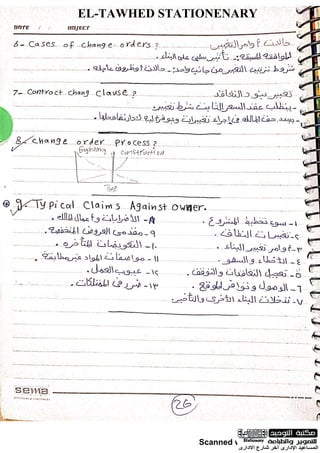 EL-TAWHED STATIONENARY
DATE / / OBJECT
6- Cases of change orders? حالات أوامر التغيير
الموافقة المسبقة: تأثير سلبى على البناء.
شروط ترتيب التغيير من جانب واحد: حالات أوظروف عاجلة.
7- Contract chang clause? تغيير بنود التعاقد
- يتطلب عقد السعر الثابت شرط تغيير
- يحدد حق المالك فى إجراء تغييرات ويوفر آلية
8- change order process?
Engineering Construction
Time
9- Typical Claims Against owner.
١- سوء تخطيط المشروع.
٢- تغييرات النطاق.
٣- أوامر تغيير البناء.
٤- الأخطاء والسهو.
٥- تعجيل التعاقدات والتوقف.
٦- الوصول وتوافر الموقع.
٧- تدخلات البناء الأخرى والتأخير
٨- الأضرابات وأعمال الله.
٩- مقدمى العروض المنخفضة.
١٠- التعويضات المتأخرة.
١١- مواصفات المواد غير مطابقة.
١٢- عيوب العمل.
١٣- ضرر فى الممتلكات.
sema
26
Scanned
مكتبة التوحيد
للتصوير والطباعة Stationery
المساعيد الإدارى آخر شارع الإدارى